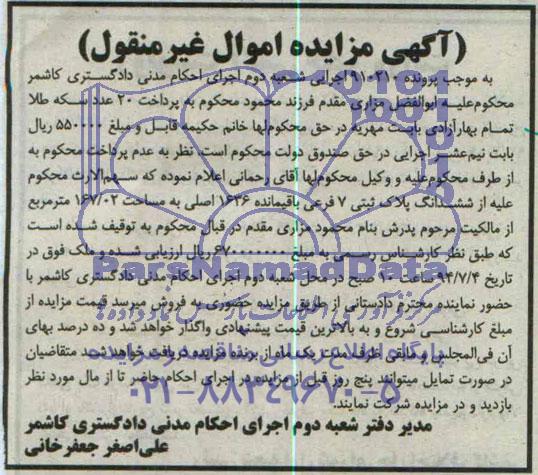 (آگهی مزایده اموال غیرمنقول)
به موجب پرونده ۹۱۰۲۱۰ اجرایی شعبه دوم اجرای احکام مدنی دادگستری کاشمر
محکوم‌علیه ابوالفضل مزاری مقدم فرزند محمود محکوم به پرداخت ۲۰ عدد سکه طلا
تمام بهارآزادی بابت مهریه در حق محکوم‌لها خانم حکیمه قابل و مبلغ ۵۵۰۰۰۰ ریال
بابت نیم‌عشر اجرایی در حق صندوق دولت محکوم است. نظر به عدم پرداخت محکوم به
از طرف محکوم‌علیه و وکیل محکوم‌لها آقای رحمانی اعلام نموده که سهم‌الارث محکوم
علیه از ششدانگ پلاک ثبتی ۷ فرعی باقیمانده ۱۶۳۶ اصلی به مساحت ۱۶۷/۰۲ مترمربع
از مالکیت مرحوم پدرش بنام محمود مزاری مقدم در قبال محکوم به توقیف شده است
که طبق نظر کارشناس رسمی به مبلغ ریال ارزیابی شده و ملک فوق در
تاریخ ۹۴/۷/۴ ساعت صبح در محل شعبه دوم اجرای احکام مدنی دادگستری کاشمر با
حضور نماینده محترم دادستانی از طریق مزایده حضوری به فروش میرسد قیمت مزایده از
مبلغ کارشناسی شروع و به بالاترین قیمت پیشنهادی واگذار خواهد شد و ده درصد بهای
آن فی‌المجلس و مابقی ظرف مدت یک ماه از برنده مزایده دریافت خواهد شد متقاضیان
در صورت تمایل میتوانند پنج روز قبل از مزایده در اجرای احکام حاضر تا از مال مورد نظر
بازدید و در مزایده شرکت نمایند.
مدیر دفتر شعبه دوم اجرای احکام مدنی دادگستری کاشمر
علی‌اصغر جعفرخانی
ParsNamadData
پایگاه اطلاع رسانی مناقصه و مزایده
۰۲۱-۸۸۳۴۹۶۷۰-۵